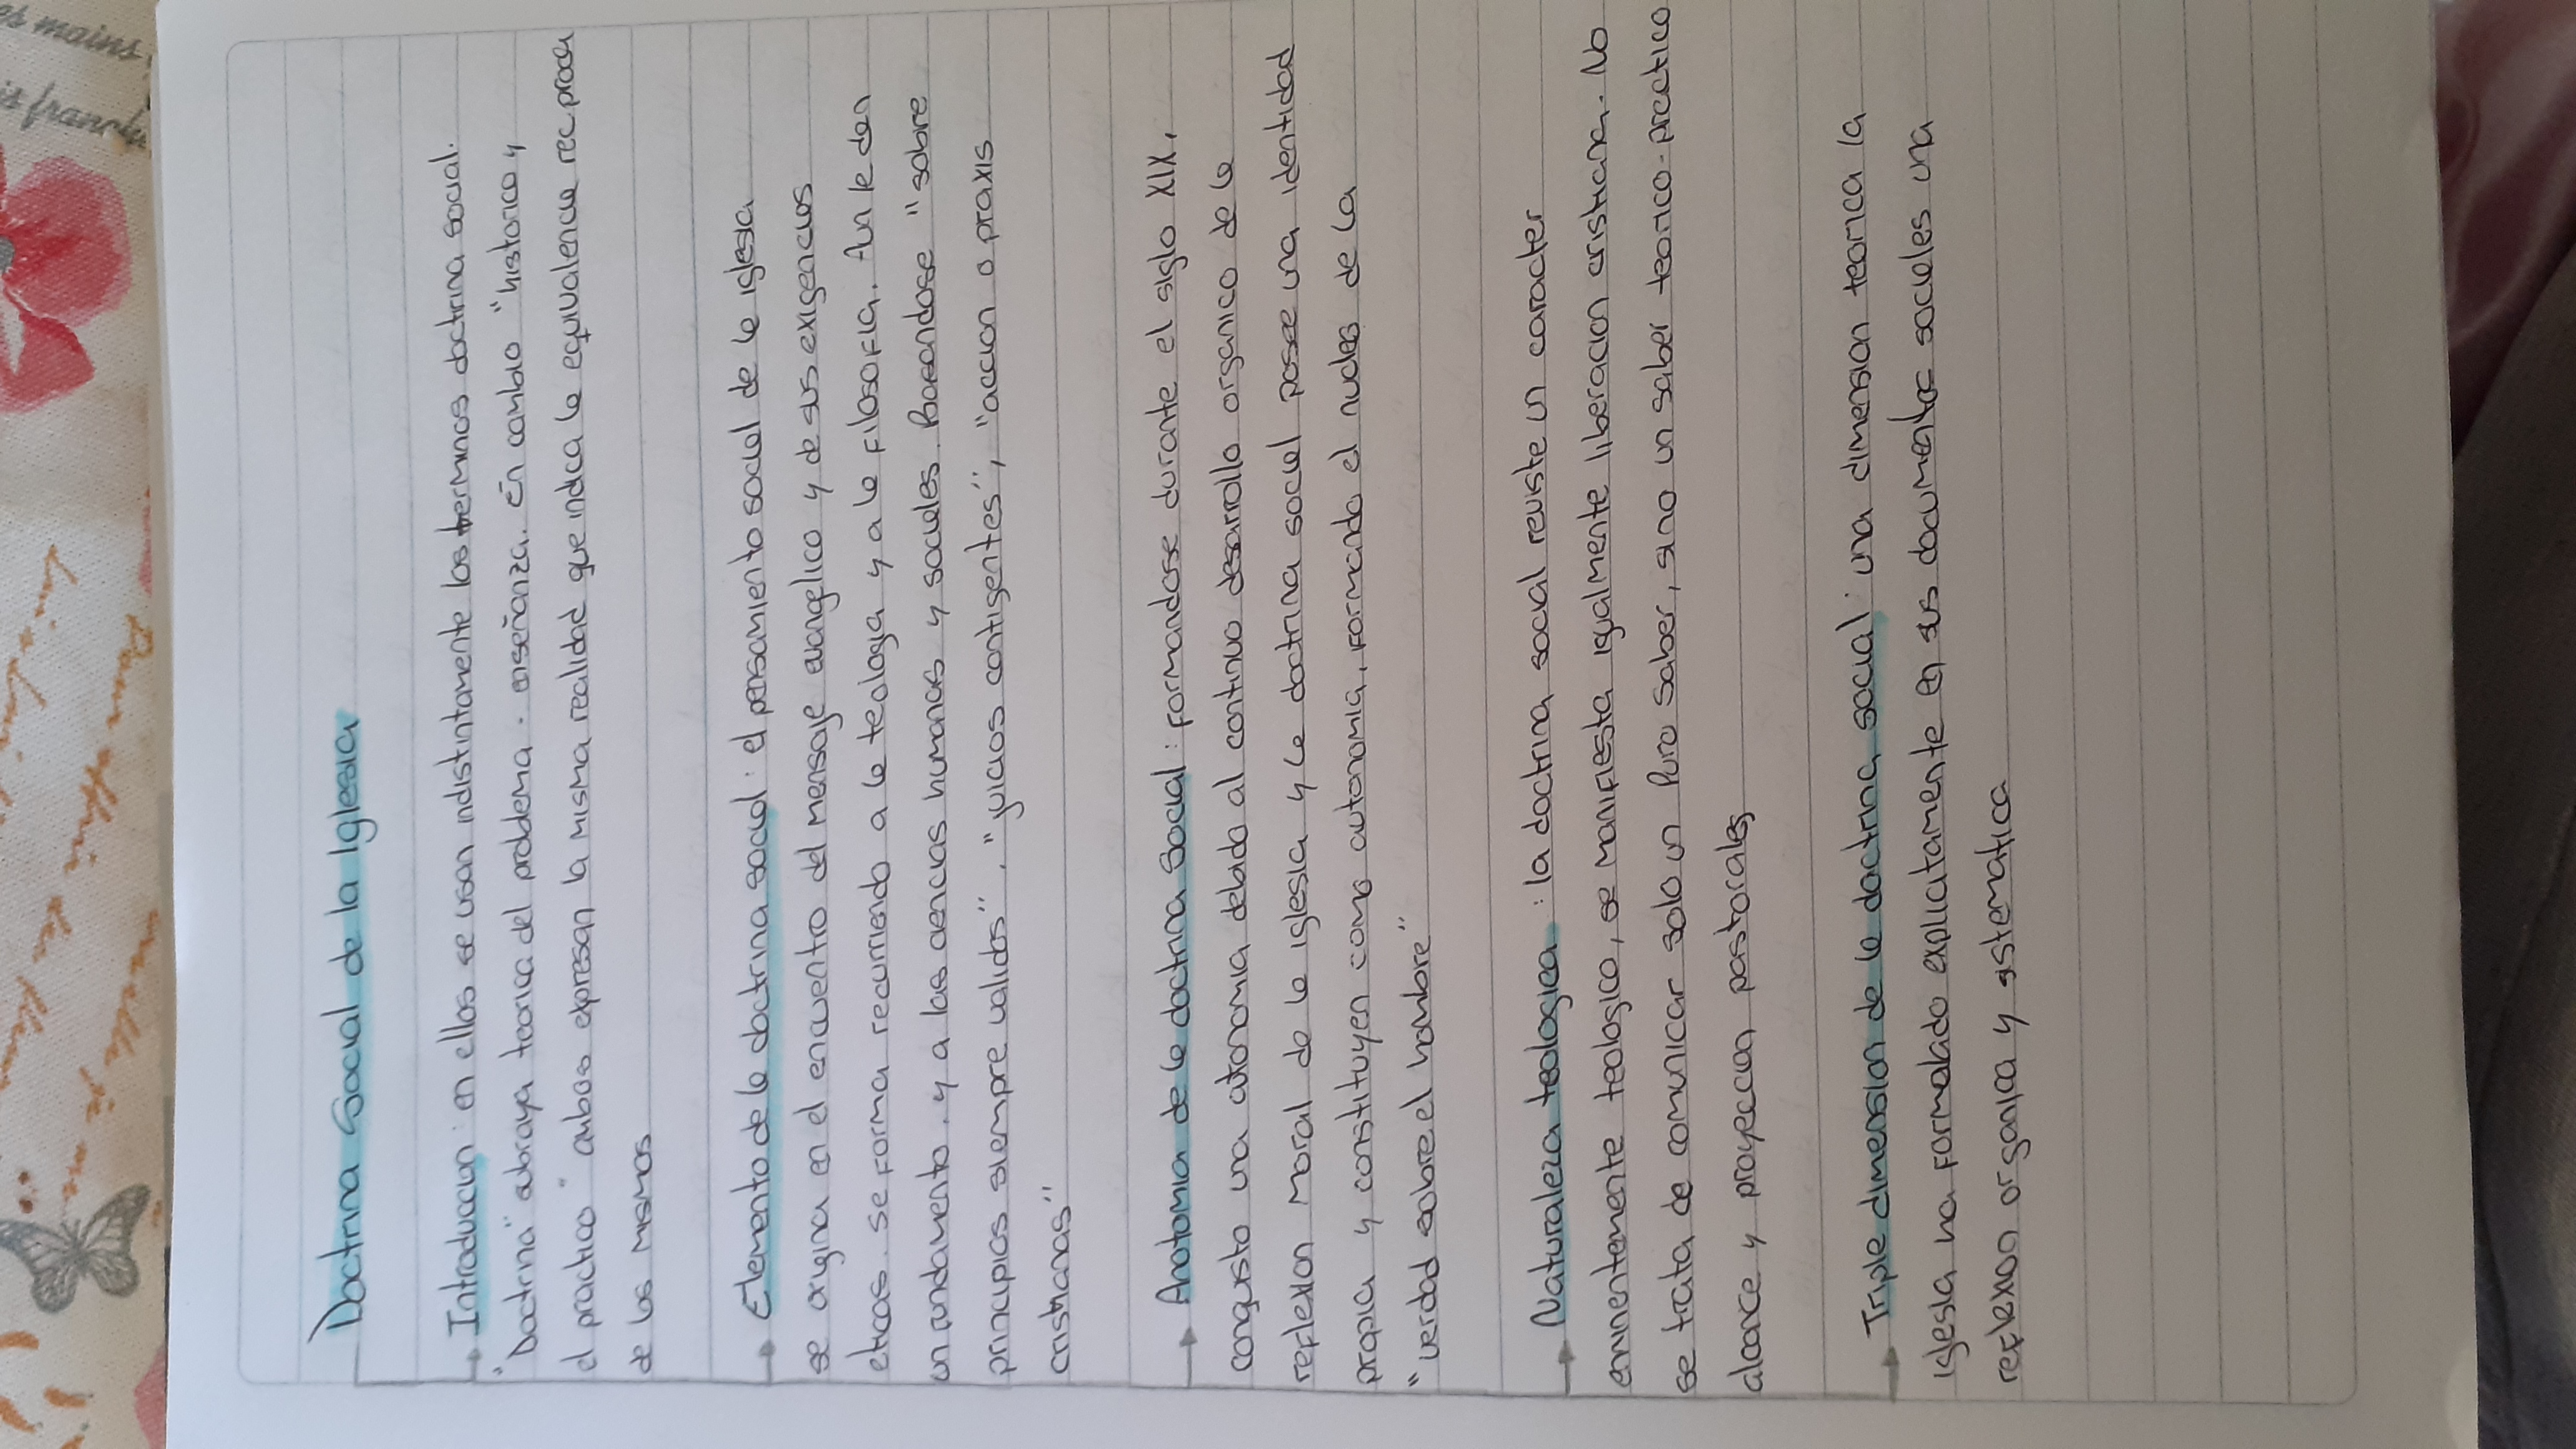 Doctrina Social de la Iglesia
Introduccion: en ellos se usan indistintamente los terminos doctrina social.
"Doctrina" subraya teorica del problema. enseñanza. En cambio "historico y
el practico" ambos expresan la misma realidad que indica la equivalencia reciproca
de los mismos
Elemento de la doctrina social: el pensamiento social de la iglesia
se origina en el encuentro del mensaje evangelico y de sus exigencias
eticas. se forma recurriendo a la teologia y a la filosofia. Aun le dan
un fundamento, y a las ciencias humanas y sociales. Basandose "sobre
principios siempre validos". "juicios contigentes", "accion o praxis
cristianas"
Anotomia de la doctrina social: formandose durante el siglo XIX,
conquisto una autonomia debido al continuo desarrollo organico de la
reflexion moral de la iglesia y la doctrina social posee una identidad
propia y constituyen como autonomia, formando el nucleo de la
"verdad sobre el hombre"
Naturaleza teologica: la doctrina social reviste un caracter
eminentemente teologico, se manifiesta igualmente liberacion cristiana. No
se trata de comunicar solo un puro saber, sino un saber teorico-practico
alcance y proyeccion pastorales
Triple dimension de la doctrina social: una dimension teorica la
iglesia ha formulado explicitamente en sus documentos sociales una
reflexion organica y sistematica
es mains